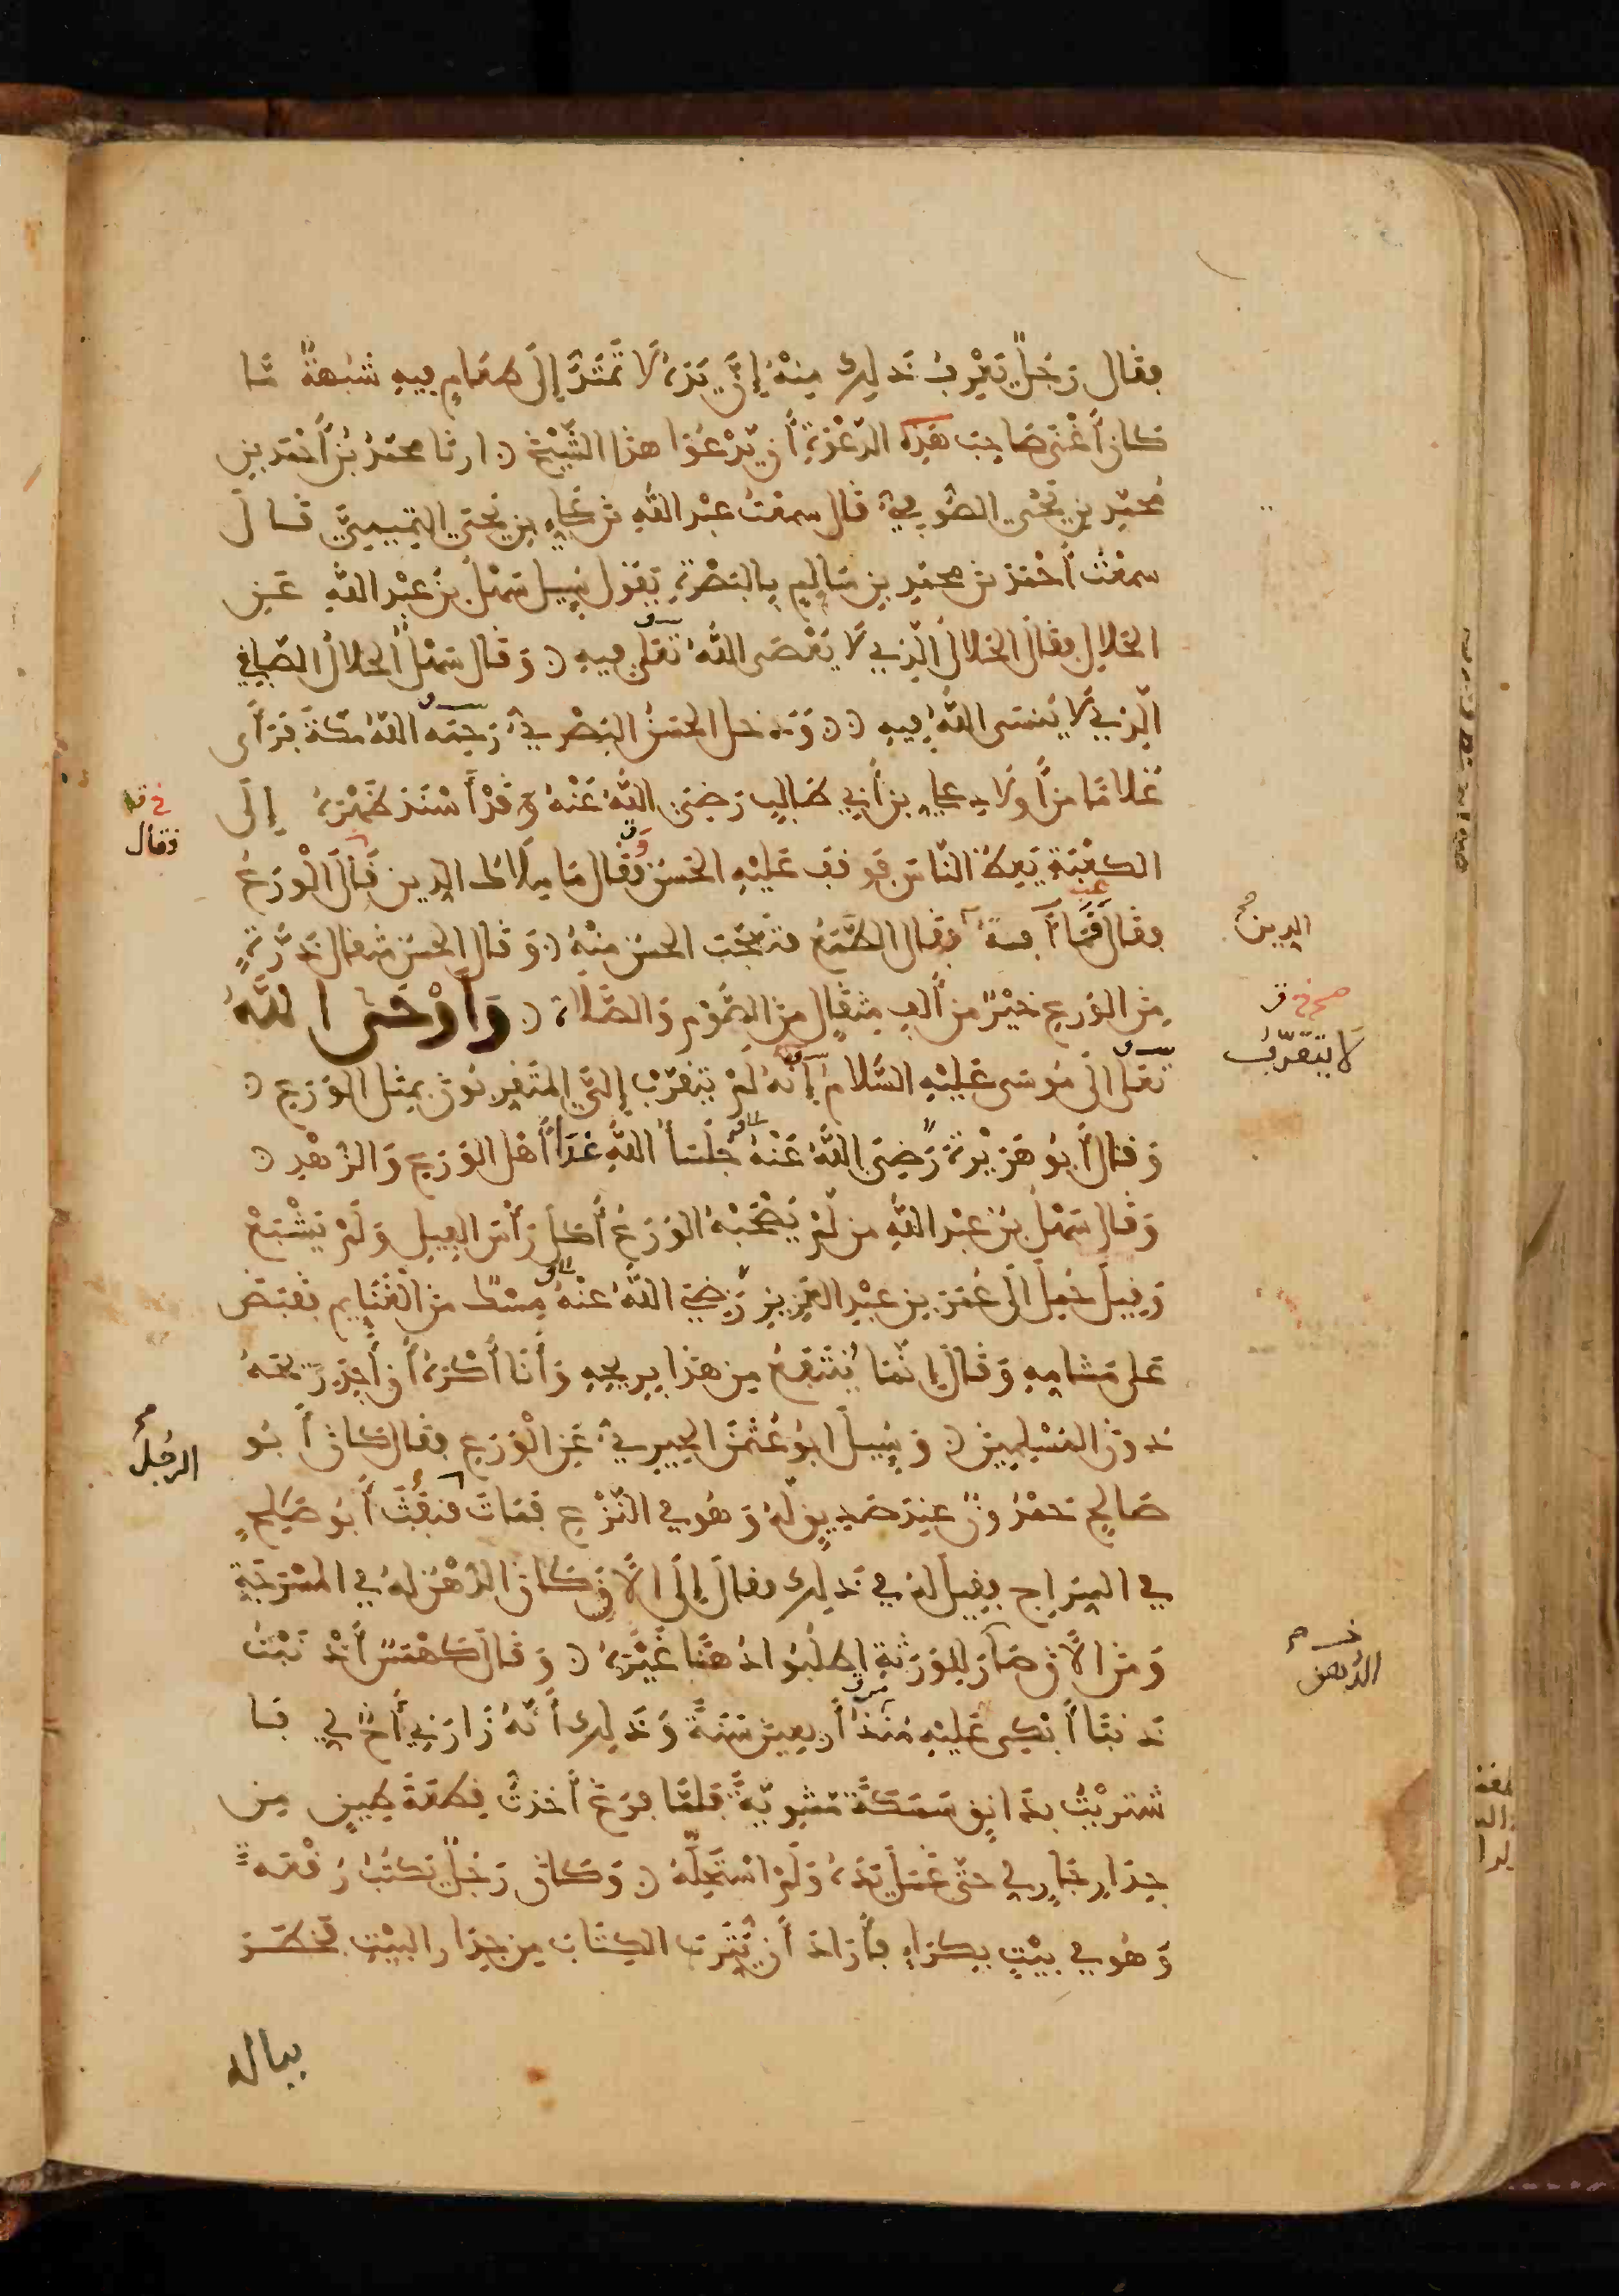 فقال رَجُلٌ يَعْرِفُ ذَلِكَ مِنْهُ إِنَّ يَدَهُ لَا تَمْتَدُّ إِلَى طَعَامٍ فِيهِ شُبْهَةٌ مَا
كان أَغْنَى صَاحِبَ هَذِهِ الدَّعْوَةِ أَنْ يَدْعُوَا هذا الشَّيْخَ ارنا محمدُ بْنُ أَحْمَدَ بنِ
مُحمّدِ بنِ يَحْيَى الصُّوفِيُّ قال سمعْتُ عبْدَ اللَّهِ بْنَ عَلِيِّ بنِ يَحْيَى التَّمِيمِيَّ قال
سمعْتُ أَحْمَدَ بنَ محمدِ بنِ سَالِمٍ بِالبَصْرَةِ يَقُولُ سُيِلَ سَهْلُ بنُ عَبْدِ اللَّهِ عَنِ
الحَلالِ فقالَ الحَلالُ الَّذِي لَا يُعْصَى اللَّهُ تَعَلَى فيهِ وَقَالَ سَهْلٌ الحلالُ الصَّافِي
الَّذِي لَا يُنْسَى اللَّهُ فِيهِ وَدَخل الحَسَنُ البَصْرِيُّ رَحِمَه اللَّهُ مَكَّةَ فَرَأَى
غُلَامًا مِنْ أَولَادِ عليِّ بنِ أَبِي طَالِبٍ رَضِيَ اللَّهُ عَنْهُ وَقَدْ أَسْنَدَ ظَهْرَهُ إِلَى
الكعْبَةِ يَعِظُ النَّاسَ فَوقفَ عَلَيْهِ الحَسَنُ وَقَالَ مَا مِلَاكُ الدينِ قَالَ الْوَرَعُ
فقالَ فَمَا آفةُ فقال الطَّمَعُ فتَعجَّبَ الحسَنُ مِنْهُ وَقَالَ الحسَنُ مثقالُ ذَرَّةٍ
مِنَ الوَرَعِ خَيْرٌ مِنْ أَلفِ مِثقَالٍ مِنَ الصَّوْمِ وَالصَّلَاةِ وَأَوْحَى اللَّهُ
تعَلَى الَى مُوسَى عَلَيْهِ السَّلَامُ إِنَّهُ لَمْ يَتَقَرَّبْ إِلَيَّ المُتَقَرِّبُونَ بِمِثْلِ الوَرَعِ
وَقالَ أَبُو هُرَيْرَةَ رَضِيَ اللَّهُ عَنْهُ جُلَسَآءُ اللَّهِ غَدًا أَهْلُ الوَرَعِ وَالزُهْدِ
وَقَالَ سَهْلُ بنُ عَبْدِ اللَّهِ مَن لَمْ يَصْحَبْهُ الوَرَعُ أَكَلَ رَأْسَ الفِيلِ وَلَمْ يَشْبَعْ
وَقِيلَ حُمِلَ الَى عُمَرَ بنِ عَبْدِ العَزِيزِ رَضِيَ اللَّهُ عَنْهُ مِسْكٌ مِنَ الْغَنَايِمِ فقبَضَ
عَلَى مَشامِهِ وَقَالَ إِنَّمَا يُنْتَفَعُ مِن هَذا بِرِيحِهِ وَأَنَا أَكْرَهُ أَن أَجِدَ رِيحَهُ
دُونَ المُسْلِمِينَ وَسُيِلَ ابُو عُثْمَنَ الحِيرِيُّ عَنِ الْوَرَعِ فقال كَانَ أَبُو
صَالحٍ حَمْدُونُ عِندَ صَدِيقٍ لَهُ وَهُوَ في النَّزْعِ فَمَاتَ فنفَثَ أَبُو صَالحٍ
في السِّرَاجِ فَقِيلَ لَهُ فِي ذَلِكَ فقالَ إِلَى الآنَ كَانَ الدُّهْنُ لَهُ في المِسْرَجَةِ
وَمِنَ الآنَ صَارَ لِلوَرَثَةِ اطلُبُوا دُهْنًا غَيْرَهُ وَقَالَ كَهْمَسٌ أَذْنَبْتُ
ذَنبًا أَبْكِي عَلَيْهِ مُنْذُ أَربَعِينَ سَنَةً وَذَلِكَ أَنَّهُ زَارَنِي أَخٌ لِي فا
شتَرَيْتُ بِدَانِقٍ سَمَكَةً مَشوِيَّةً فَلَمَّا فَرَغَ أَخذتُ قِطعَةَ طِينٍ مِن
جِدَارِ جَارٍ لِي حَتَّى غَسَلَ يَدَهُ وَلَمْ اسْتَحِلَّهُ وَكَانَ رَجُلٌ يَكتُبُ رُقْعَةً
وَهُو فِي بَيْتٍ بِكِرَاءٍ فأَرَادَ أَن يُتَرِّبَ الكِتَابَ مِن جِدَارِ البَيْتِ فَخَطَرَ
بباله
فقال
الدين
صح
لَا يتقرّبُ
الرجُل
الدُهن